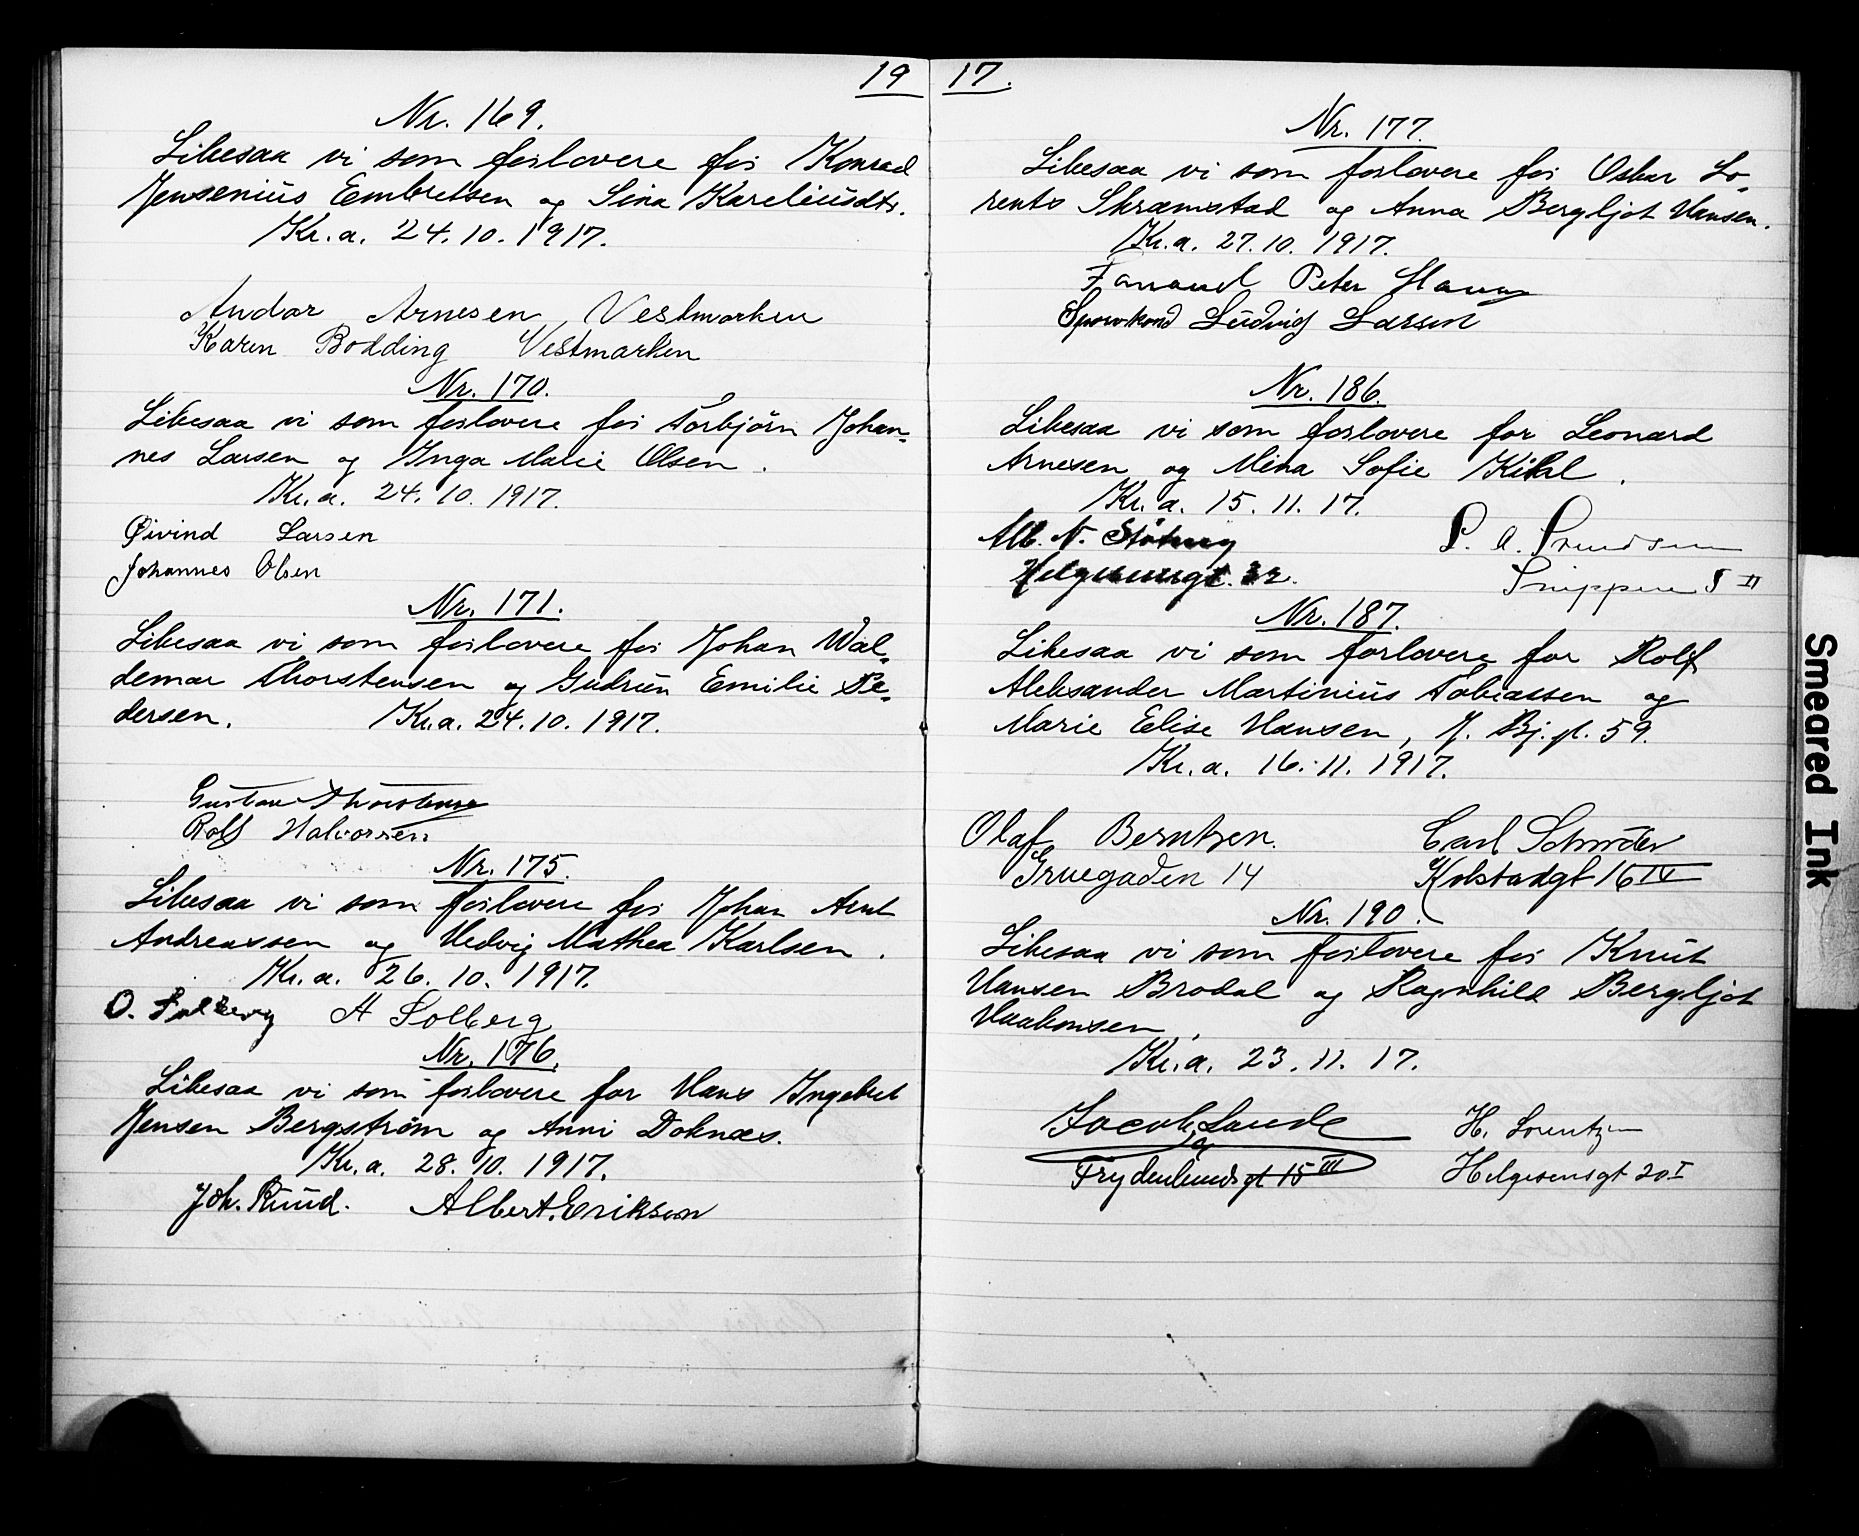 19 17.
Nr. 169.
Likesaa vi som forlovere for Konrad
Jensenius Embretsen og Sina Kareliusdtr.
Kr.a. 24.10.1917.
Andor Arnesen Vestmarken
Karen Bodding Vestmarken
Nr. 170.
Likesaa vi som forlovere for Torbjörn Johan-
nes Larsen og Inga Marie Olsen.
Kr.a. 24.10.1917.
Øivind Larsen
Johannes Olsen
Nr. 171.
Likesaa vi som forlovere for Johan Wal-
demar Thorstensen og Gudrun Emilie Pe-
dersen. Kr.a. 24.10.1917.
Gustav Thorstensen
Rolf Halvorsen
Nr. 175.
Likesaa vi som forlovere for Johan Arnt
Andreassen og Hedvig Mathea Karlsen.
Kr.a. 26.10.1917.
O. Solberg A Solberg
Nr. 176.
Likesaa vi som forlovere for Hans Ingebret
Jensen Bergström og Anni Doknæs.
Kr.a. 28.10.1917.
Joh. Ruud. Albert. Erikson
Nr. 177.
Likesaa vi som forlovere for Oskar Lo-
rents Skramstad og Anna Bergljot Hansen.
Kr.a. 27.10.1917.
Peter
Ludvig Larsen
Nr. 186.
Likesaa vi som forlovere for Leonard
Arnesen og Mina Sofie Kihl.
Kr.a. 15.11.17.
Alb. N.
Helgesensgt. 32.
Nr. 187.
Likesaa vi som forlovere for Rolf
Aleksander Martinius Tobiassen og
Marie Elise Hansen, M. Bj.gt. 59.
Kr.a. 16.11.1917.
Olaf Berntzen. Carl Schrøder
Gruegaden 14 Kolstadgt 16 IV
Nr. 190.
Likesaa vi som forlovere for Knut
Hansen Brodal og Ragnhild Bergljot
Haakonsen.
Kr.a. 23.11.17.
Jacob Sande H. Lorentzen
Frydenlundsgt 15 III Helgesensgt 20 I
Smeared Ink